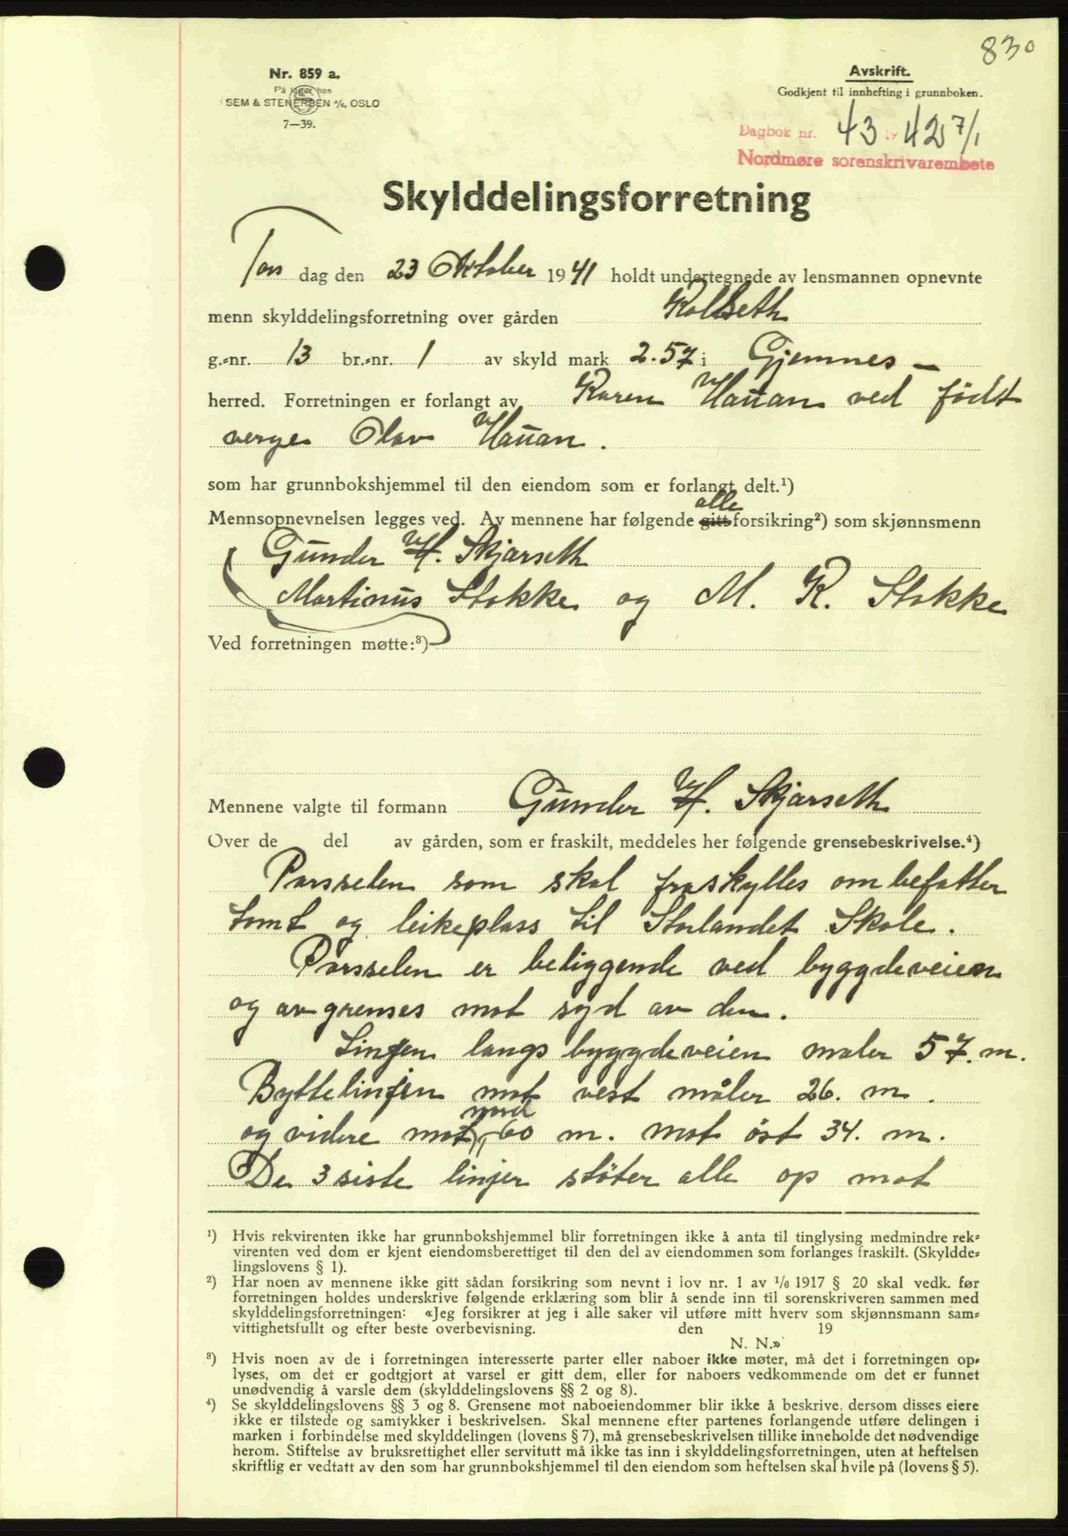 830
Nr. 859 a.
På lager hos
SEM & STENERSEN A/S, OSLO
7—39.
Avskrift.
Godkjent til innhefting i grunnboken.
Dagbok nr. 43 19 42 7/1
Nordmøre sorenskrivarembete
Skylddelingsforretning
Tors dag den 23 Oktober 1941 holdt undertegnede av lensmannen opnevnte
menn skylddelingsforretning over gården Kolseth
g.-nr. 13 br.-nr. 1 av skyld mark 2.57 i Gjemnes —
herred. Forretningen er forlangt av Karen Hauan ved født
verge Olav Hauan.
som har grunnbokshjemmel til den eiendom som er forlangt delt.¹)
alle
Mennsopnevnelsen legges ved. Av mennene har følgende gitt forsikring²) som skjønnsmenn
Gunder H. Skjärseth
Martinus Stokke og M. K. Stokke
Ved forretningen møtte:³)
Mennene valgte til formann Gunder H. Skjärseth
Over de del av gården, som er fraskilt, meddeles her følgende grensebeskrivelse.⁴)
Parselen som skal fraskylles ombefatter
tomt og leikeplass til Storlandet Skole.
Parselen er beliggende ved byggdeveien
og avgrenses mot syd av den.
Linjen langs byggdeveien måler 57. m.
Byttelinjen mot vest måler 26. m.
nord
og videre mot 60 m. mot öst 34. m.
De 3 siste linjer stöter alle op mot
¹) Hvis rekvirenten ikke har grunnbokshjemmel blir forretningen ikke å anta til tinglysing medmindre rek-
virenten ved dom er kjent eiendomsberettiget til den del av eiendommen som forlanges fraskilt. (Skyldde-
lingslovens § 1).
²) Har noen av mennene ikke gitt sådan forsikring som nevnt i lov nr. 1 av 1/6 1917 § 20 skal vedk. før
forretningen holdes underskrive følgende erklæring som blir å sende inn til sorenskriveren sammen med
skylddelingsforretningen: «Jeg forsikrer at jeg i alle saker vil utføre mitt hverv som skjønnsmann sam-
vittighetsfullt og efter beste overbevisning. den 19
N. N.»
³) Hvis noen av de i forretningen interesserte parter eller naboer ikke møter, må det i forretningen op-
lyses, om det er godtgjort at varsel er gitt dem, eller for naboers vedkommende om det er funnet
unødvendig å varsle dem (skylddelingslovens §§ 2 og 8).
⁴) Se skylddelingslovens §§ 3 og 8. Grensene mot naboeiendommer blir ikke å beskrive, dersom disses eiere
ikke er tilstede og samtykker i beskrivelsen. Skal mennene efter partenes forlangende utføre delingen i
marken i forbindelse med skylddelingen (lovens § 7), må grensebeskrivelsen tillike inneholde det nødvendige
herom. Stiftelse av bruksrettighet eller servitutt må ikke tas inn i skylddelingsforretningen, uten at heftelsen
skriftlig er vedtatt av den som har grunnbokshjemmel til den eiendom som heftelsen skal hvile på (lovens § 5).